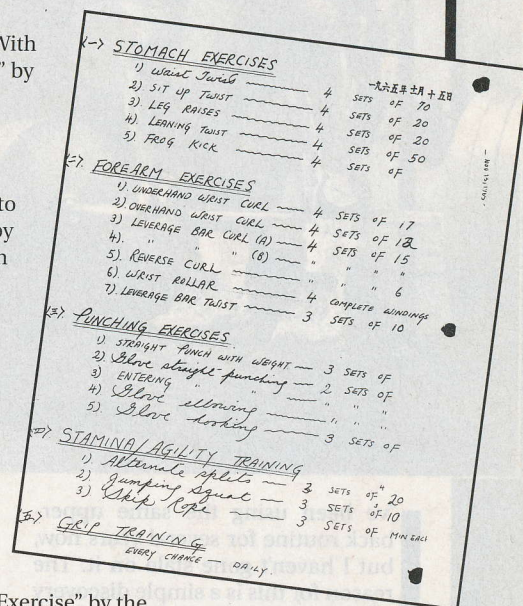 With
" by
to
by
n
(一) STOMACH EXERCISES
一九六五年十一月十五日
1) Waist Twist — 4 SETS OF 70
2). SIT UP TWIST — 4 SETS OF 20
3). LEG RAISES — 4 SETS OF 20
4). LEANING TWIST — 4 SETS OF 50
5) FROG KICK — 4 SETS OF
- NOV 15, 1965 -
(二). FOREARM EXERCISES
1). UNDERHAND WRIST CURL — 4 SETS OF 17
2) OVERHAND WRIST CURL — 4 SETS OF 12
3) LEVERAGE BAR CURL (A) — 4 SETS OF 15
4). " " " (B) — " " " "
5). REVERSE CURL — " " " 6
6) WRIST ROLLAR — 4 COMPLETE WINDINGS
7). LEVERAGE BAR TWIST — 3 SETS OF 10
(三). PUNCHING EXERCISES
1) STRAIGHT PUNCH WITH WEIGHT — 3 SETS OF
2) Glove straight punching — 2 SETS OF
3) ENTERING " " — " " "
4) Glove elbowing — " " "
5). Glove hooking — 3 SETS OF
(四) STAMINA/AGILITY TRAINING
1) Alternate splits — 3 SETS OF 20
2) Jumping Squat — 3 SETS OF 10
3) Skip Rope — 3 SETS OF 1 MIN EACH
(五) GRIP TRAINING
EVERY CHANCE DAILY.
back routine for
but I haven't
reason for this is a simple discovery
Exercise" by the